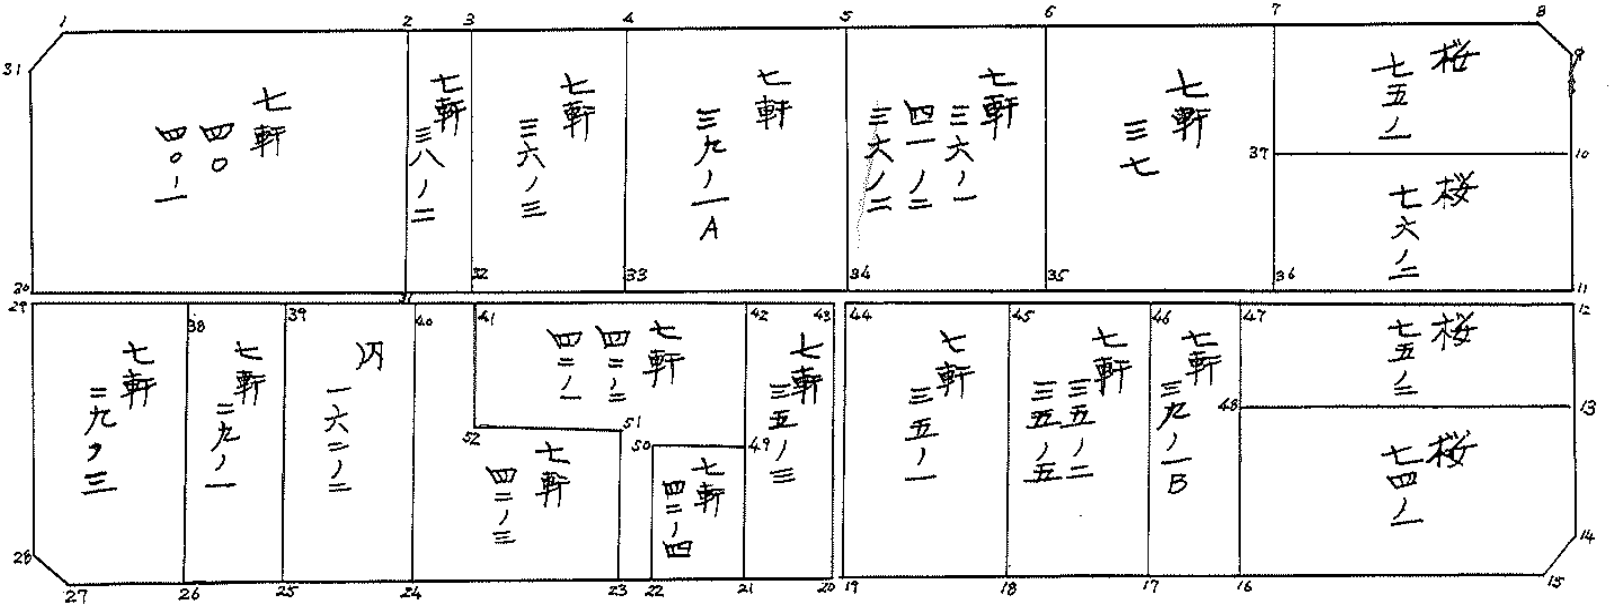 1 2 3 4 5 6 7 8
9
31
七軒
四〇
四〇ノ一
七軒
三八ノ二
七軒
三六ノ三
七軒
三九ノ一A
七軒
三六ノ一
四一ノ二
三六ノ二
七軒
三七
桜
七五ノ一
37 10
桜
七六ノ二
30 31 32 33 34 35 36 11
29 38 39 40 41 42 43 44 45 46 47 12
七軒
二九ノ三
七軒
二九ノ一
一六二ノ二
七軒
四二ノ二
四二ノ一
52 51
七軒
四二ノ三
50 49
七軒
四二ノ四
七軒
三五ノ三
七軒
三五ノ一
七軒
三五ノ二
三五ノ五
七軒
三九ノ一B
桜
七五ノ二
48 13
桜
七四ノ一
28 14
27 26 25 24 23 22 21 20 19 18 17 16 15